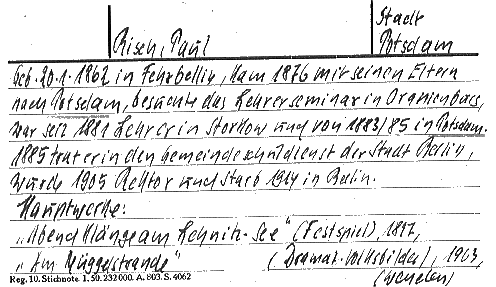 Stadt
Risch, Paul Potsdam
Geb. 20.1.1862 in Fehrbellin, kam 1876 mit seinen Eltern
nach Potsdam, besuchte das Lehrerseminar in Oranienburg,
war seit 1881 Lehrer in Storkow und von 1883/85 in Potsdam.
1885 trat er in den Gemeindeschuldienst der Stadt Berlin,
wurde 1905 Rektor und starb 19 in Berlin.
Hauptwerke:
"Abendklänge am Lehnitz-See" (Festspiel), 1897,
"Am Müggelstrande" (Dramat. Volksbilder), 1903,
Reg. 10. Stichnote. 1. 50. 232000. A. 803. S. 4062 (wenden)